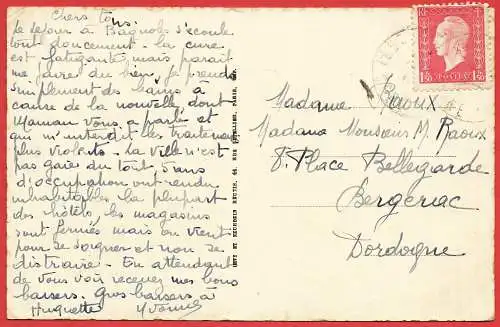 Chers tous.
Le sejour à Bagnols s'ecoule
tout doucement. la cure
est fatigante mais parait
me faire du bien, je prends
simplement des bains à
cause de la nouvelle dont
Maman vous a parlé et
qui m'interdit les traitements
plus violents. La ville n'est
pas gaie du tout. 5 ans
d'occupation ont rendu
inhabitables la plupart
des hôtels, les magasins
sont fermés mais on vient
pour se soigner et non se
distraire. En attendant
de vous voir recevez mes bons
baisers. Gros baisers à
Huguette Yvonne
Madame Raoux
Madame Monsieur M. Raoux
8. Place Bellegarde
Bergerac
Dordogne